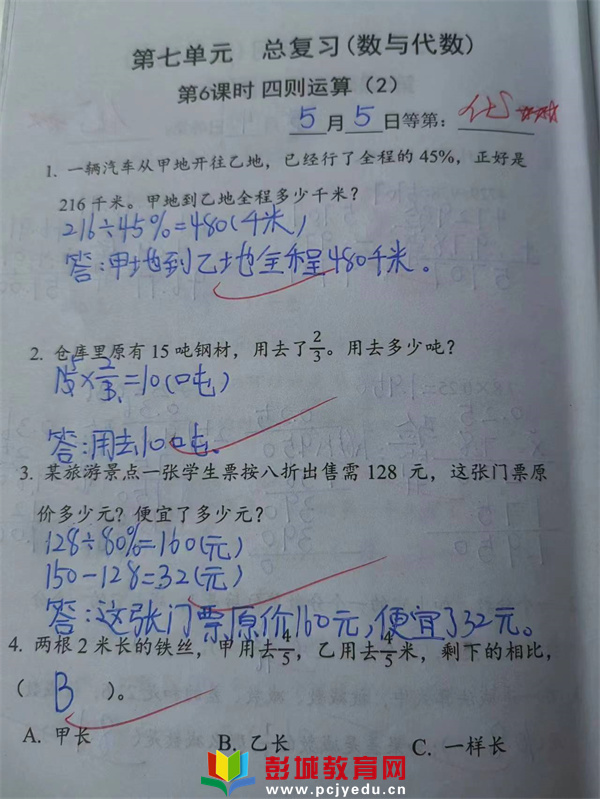 第七单元 总复习(数与代数)
第6课时 四则运算(2)
5月5日等第:
1. 一辆汽车从甲地开往乙地,已经行了全程的45%,正好是
216千米。甲地到乙地全程多少千米?
216÷45%=480(千米)
答:甲地到乙地全程480千米。
2. 仓库里原有15吨钢材,用去了2/3。用去多少吨?
15×2/3=10(吨)
答:用去10吨。
3. 某旅游景点一张学生票按八折出售需128元,这张门票原
价多少元?便宜了多少元?
128÷80%=160(元)
150-128=32(元)
答:这张门票原价160元,便宜了32元。
4. 两根2米长的铁丝,甲用去4/5,乙用去4/5米,剩下的相比,
( B )。
A. 甲长 B. 乙长 C. 一样长
彭城教育网
www.pcjyedu.cn